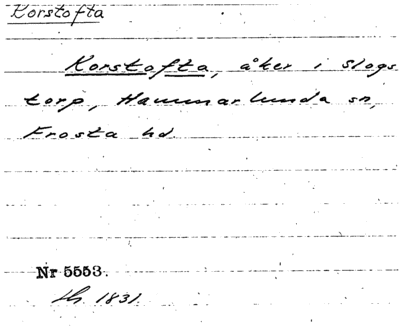 Korstofta
Korstofta, åker i Slogs
torp, Hammarlunda sn,
Frosta hd.
Nr 5553.
1831.